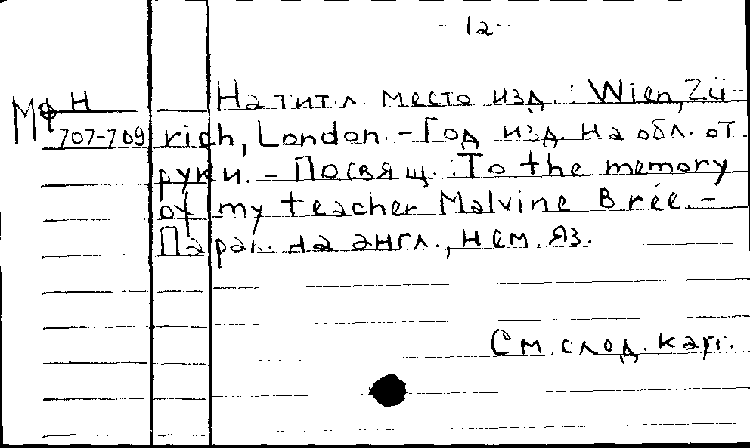 - 12 -
Н На титл. место изд.: Wien, Zü-
МФ 707-709 rich, London. - Год изд. на обл. от
руки. - Посвящ.: To the memory
of my teacher Malvine Brée. -
Парал. на англ., нем. яз.
См. след. карт.